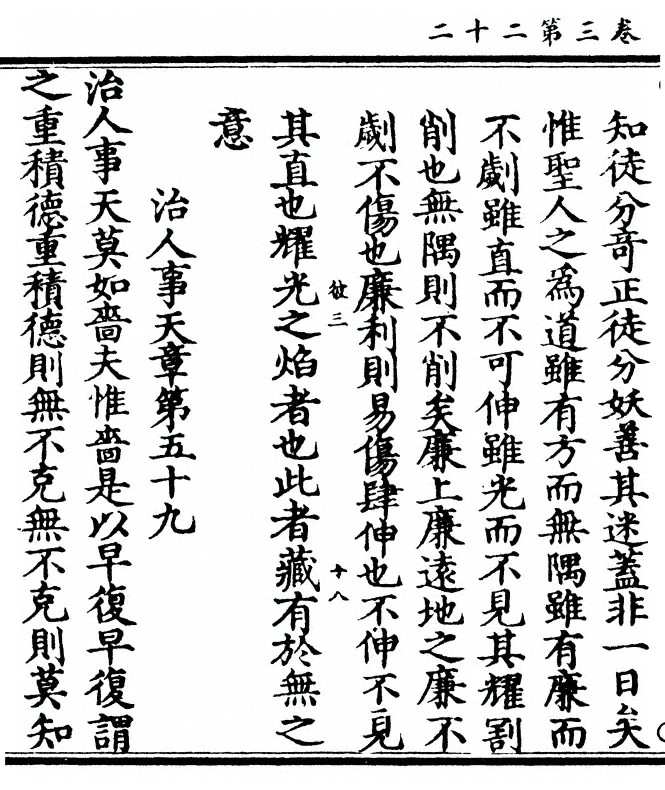 卷三第二十二
知徒分竒正徒分妖善其迷蓋非一日矣
惟聖人之為道雖有方而無隅雖有廉而
不劌雖直而不可伸雖光而不見其耀割
削也無隅則不削矣廉上廉遠地之廉不
劌不傷也廉利則易傷肆伸也不伸不見
彼三 十八
其直也耀光之焰者也此者藏有於無之
意
治人事天章第五十九
治人事天莫如嗇夫惟嗇是以早復早復謂
之重積德重積德則無不克無不克則莫知